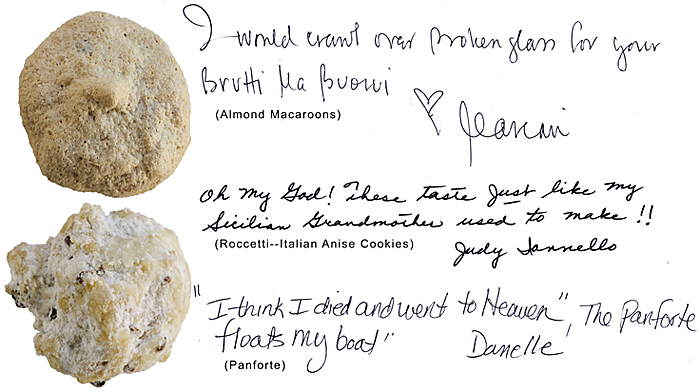 I would crawl over broken glass for your
Brutti Ma Buoni
(Almond Macaroons)
Oh my God! These taste Just like my
Sicilian Grandmother used to make !!
(Roccetti--Italian Anise Cookies)
Judy Iannello
"I think I died and went to Heaven", The Panforte
floats my boat"
Danelle
(Panforte)